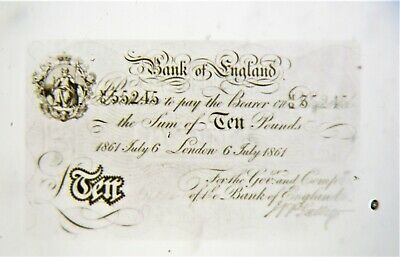 Bank of England
55245 to pay the Bearer on
the Sum of Ten Pounds
1861 July 6 London 6 July 1861
For the Gov.r and Comp.a
£Ten of the Bank of England